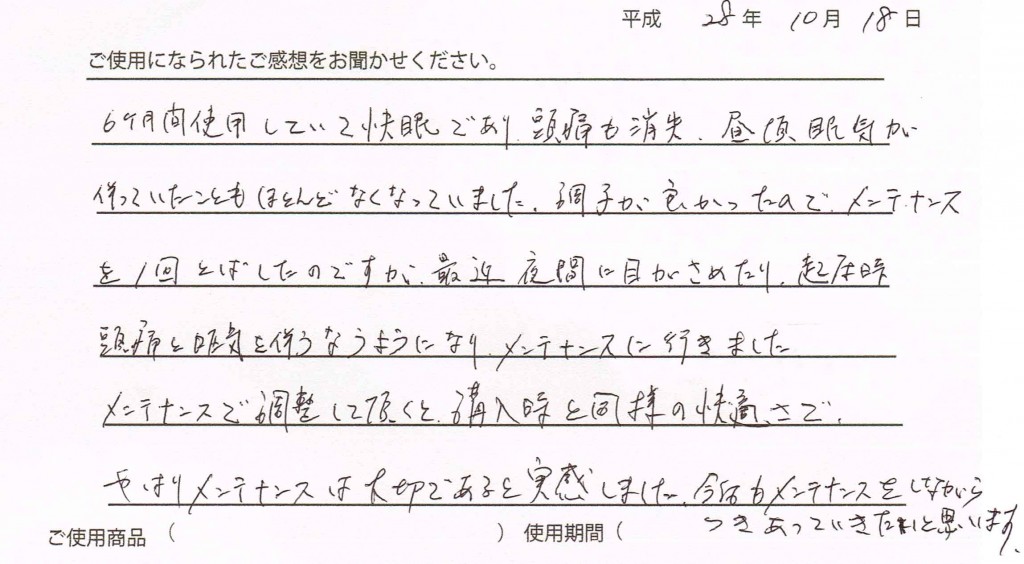 平成 28年 10月 18日
ご使用になられたご感想をお聞かせください。
6ケ月間使用していて快眠であり、頭痛も消失、昼頃眠気が
伴っていたこともほとんどなくなっていました。調子が良かったので、メンテナンス
を1回とばしたのですが、最近夜間に目がさめたり、起床時
頭痛と眠気を伴うなうようになり、メンテナンスに行きました
メンテナンスで調整して頂くと、購入時と同様の快適さで、
やはりメンテナンスは大切であると実感しました。今后もメンテナンスをしながら
つきあっていきたいと思います。
ご使用商品（　　　） 使用期間（